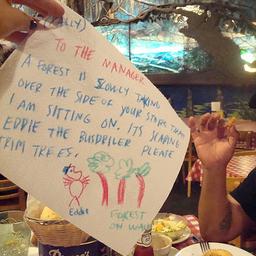 (REALLY)
TO THE MANAGER
A FOREST IS SLOWLY TAKING
OVER THE SIDE OF YOUR STAGE THAT
I AM SITTING ON. ITS SCARING
EDDIE THE BUSDRIBER PLEASE
TRIM TREES.
Eddie
FOREST
ON WALL